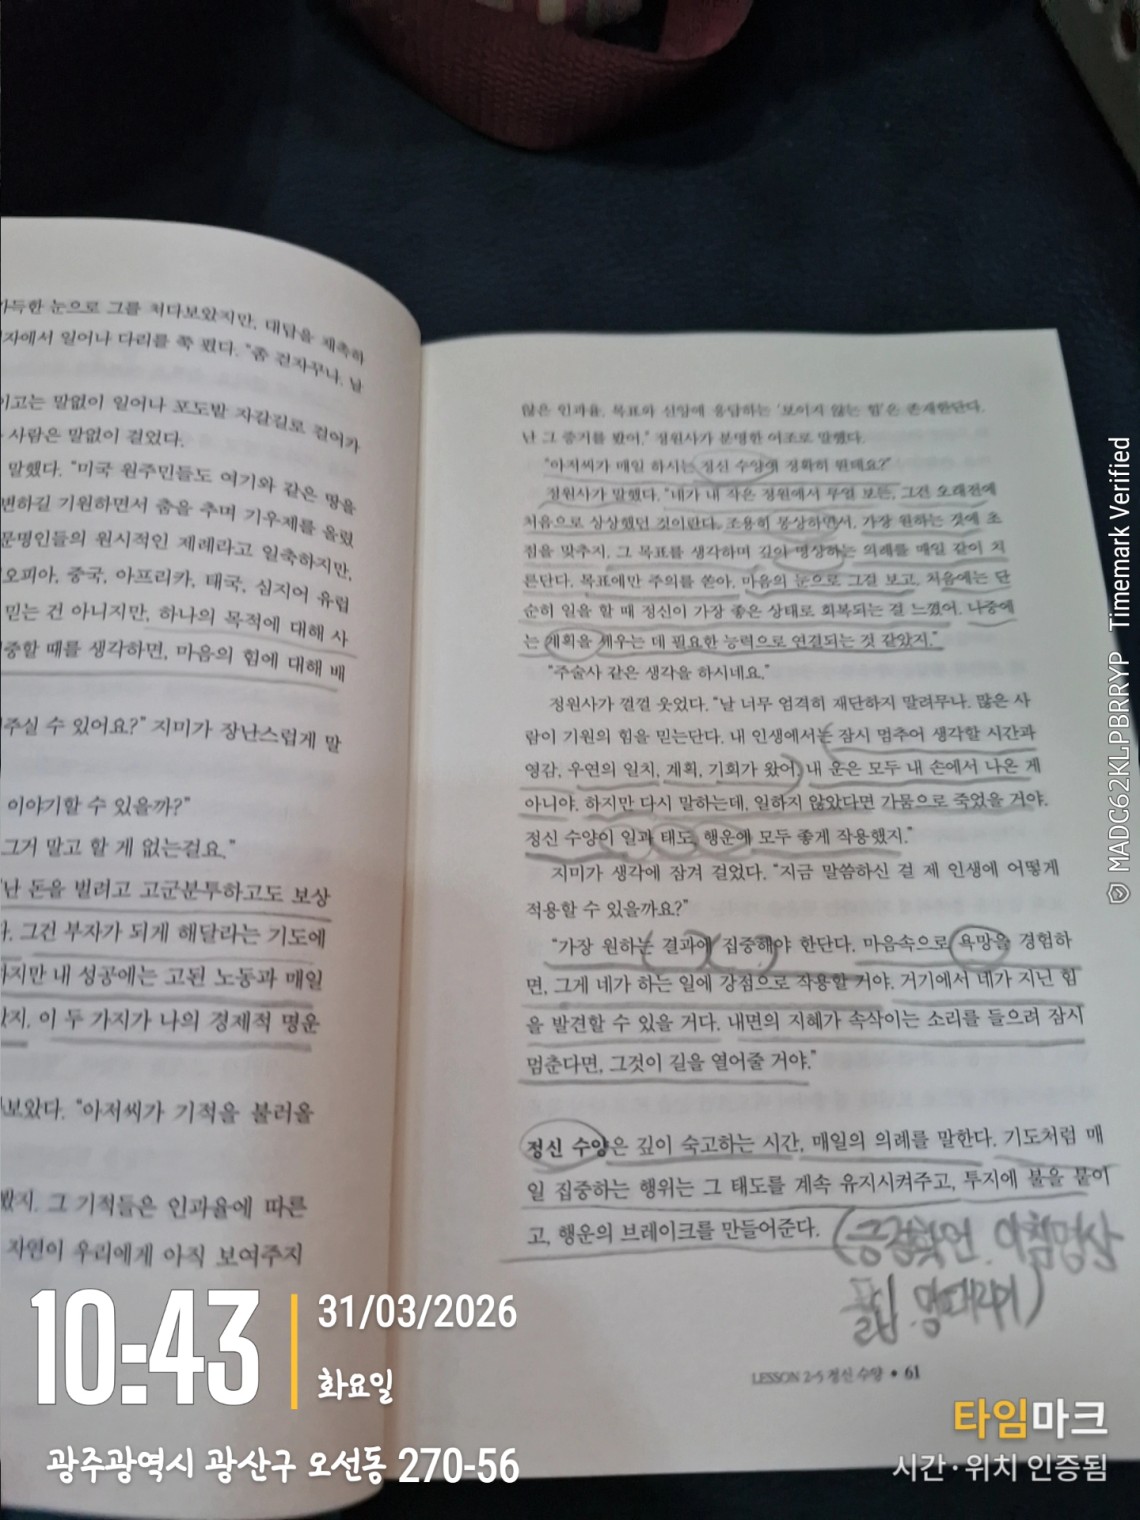 가득한 눈으로 그를 쳐다보았지만, 대답을 재촉하
자에서 일어나 다리를 쭉 폈다. "좀 걷자꾸나. 날
이고는 말없이 일어나 포도밭 자갈길로 걸어가
사람은 말없이 걸었다.
말했다. "미국 원주민들도 여기와 같은 땅을
변하길 기원하면서 춤을 추며 기우제를 올렸
문명인들의 원시적인 제례라고 일축하지만,
오피아, 중국, 아프리카, 태국, 심지어 유럽
믿는 건 아니지만, 하나의 목적에 대해 사
중할 때를 생각하면, 마음의 힘에 대해 배
주실 수 있어요?" 지미가 장난스럽게 말
이야기할 수 있을까?"
그거 말고 할 게 없는걸요."
난 돈을 벌려고 고군분투하고도 보상
그건 부자가 되게 해달라는 기도에
지만 내 성공에는 고된 노동과 매일
지. 이 두 가지가 나의 경제적 명운
보았다. "아저씨가 기적을 불러올
봤지. 그 기적들은 인과율에 따른
자연이 우리에게 아직 보여주지
않은 인과율, 목표와 신앙에 응답하는 '보이지 않는 힘'은 존재한단다.
난 그 증거를 봤어." 정원사가 분명한 어조로 말했다.
"아저씨가 매일 하시는 정신 수양이 정확히 뭔데요?"
정원사가 말했다. "네가 내 작은 정원에서 무얼 보든, 그건 오래전에
처음으로 상상했던 것이란다. 조용히 몽상하면서, 가장 원하는 것에 초
점을 맞추지. 그 목표를 생각하며 깊이 명상하는 의례를 매일 같이 치
른단다. 목표에만 주의를 쏟아, 마음의 눈으로 그걸 보고, 처음에는 단
순히 일을 할 때 정신이 가장 좋은 상태로 회복되는 걸 느꼈어. 나중에
는 계획을 세우는 데 필요한 능력으로 연결되는 것 같았지."
"주술사 같은 생각을 하시네요."
정원사가 껄껄 웃었다. "날 너무 엄격히 재단하지 말려무나. 많은 사
람이 기원의 힘을 믿는단다. 내 인생에서는 잠시 멈추어 생각할 시간과
영감, 우연의 일치, 계획, 기회가 왔어. 내 운은 모두 내 손에서 나온 게
아니야. 하지만 다시 말하는데, 일하지 않았다면 가뭄으로 죽었을 거야.
정신 수양이 일과 태도, 행운에 모두 좋게 작용했지."
지미가 생각에 잠겨 걸었다. "지금 말씀하신 걸 제 인생에 어떻게
적용할 수 있을까요?"
"가장 원하는 결과에 집중해야 한단다. 마음속으로 욕망을 경험하
면, 그게 네가 하는 일에 강점으로 작용할 거야. 거기에서 네가 지닌 힘
을 발견할 수 있을 거다. 내면의 지혜가 속삭이는 소리를 들으려 잠시
멈춘다면, 그것이 길을 열어줄 거야."
정신 수양은 깊이 숙고하는 시간, 매일의 의례를 말한다. 기도처럼 매
일 집중하는 행위는 그 태도를 계속 유지시켜주고, 투지에 불을 붙이
고, 행운의 브레이크를 만들어준다.
(긍정확언. 아침명상
LESSON 2-5 정신 수양 • 61
10:43
31/03/2026
화요일
광주광역시 광산구 오선동 270-56
타임마크
시간·위치 인증됨
MADC62KLPBRRYP Timemark Verified